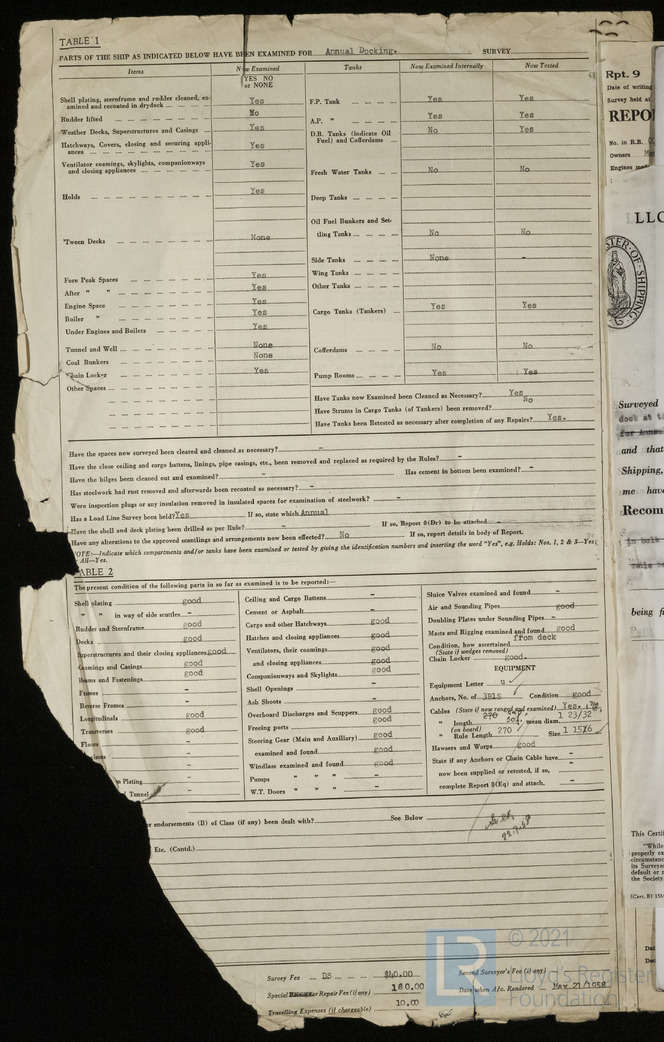 TABLE 1
PARTS OF THE SHIP AS INDICATED BELOW HAVE BEEN EXAMINED FOR Annual Docking. SURVEY
Items
Now Examined
YES NO or NONE
Tanks
Now Examined Internally
Now Tested
Shell plating, sternframe and rudder cleaned, examined and recoated in drydock Yes
Rudder lifted No
Weather Decks, Superstructures and Casings Yes
Hatchways, Covers, closing and securing appliances Yes
Ventilator coamings, skylights, companionways and closing appliances Yes
Holds Yes
'Tween Decks None
Fore Peak Spaces Yes
After " " Yes
Engine Space Yes
Boiler " Yes
Under Engines and Boilers Yes
Tunnel and Well None
Coal Bunkers None
Chain Locker Yes
Other Spaces
F.P. Tank Yes Yes
A.P. " Yes Yes
D.B. Tanks (indicate Oil Fuel) and Cofferdams No Yes
Fresh Water Tanks No No
Deep Tanks
Oil Fuel Bunkers and Settling Tanks No No
Side Tanks None -
Wing Tanks
Other Tanks
Cargo Tanks (Tankers) Yes Yes
Cofferdams No No
Pump Rooms Yes Yes
Have Tanks now Examined been Cleaned as Necessary? Yes
Have Strums in Cargo Tanks (of Tankers) been removed? No
Have Tanks been Retested as necessary after completion of any Repairs? Yes.
Have the spaces now surveyed been cleared and cleaned as necessary? -
Have the close ceiling and cargo battens, linings, pipe casings, etc., been removed and replaced as required by the Rules? -
Have the bilges been cleaned out and examined? - Has cement in bottom been examined? -
Has steelwork had rust removed and afterwards been recoated as necessary? -
Were inspection plugs or any insulation removed in insulated spaces for examination of steelwork? -
Has a Load Line Survey been held? Yes If so, state which Annual
Have the shell and deck plating been drilled as per Rule? - If so, Report 8(Dr) to be attached -
Have any alterations to the approved scantlings and arrangements now been effected? No If so, report details in body of Report.
NOTE:—Indicate which compartments and/or tanks have been examined or tested by giving the identification numbers and inserting the word "Yes", e.g. Holds: Nos. 1, 2 & 3—Yes;
All—Yes.
TABLE 2
The present condition of the following parts in so far as examined is to be reported:—
Shell plating good
" " in way of side scuttles -
Rudder and Sternframe good
Decks good
Superstructures and their closing appliances good
Coamings and Casings good
Beams and Fastenings good
Frames -
Reverse Frames -
Longitudinals good
Transverses good
Floors -
Plating -
Tunnel -
Ceiling and Cargo Battens -
Cement or Asphalt -
Cargo and other Hatchways good
Hatches and closing appliances good
Ventilators, their coamings good
and closing appliances good
Companionways and Skylights good
Shell Openings -
Ash Shoots -
Overboard Discharges and Scuppers good
Freeing ports good
Steering Gear (Main and Auxiliary) good
examined and found good
Windlass examined and found good
Pumps " " " -
W.T. Doors " " " -
Sluice Valves examined and found -
Air and Sounding Pipes good
Doubling Plates under Sounding Pipes -
Masts and Rigging examined and found good
Condition, how ascertained from deck
(State if wedges removed)
Chain Locker good.
EQUIPMENT
Equipment Letter u
Anchors, No. of 3B1S Condition good
Cables (State if now ranged and examined) Yes.
" length 270 mean diam. 1 23/32
(on board)
" Rule Length 270 Size 1 15/16
Hawsers and Warps good
State if any Anchors or Chain Cable have -
now been supplied or retested, if so, -
complete Report 8(Eq) and attach. -
endorsements (B) of Class (if any) been dealt with? See Below
Etc. (Contd.)
Survey Fee DS $40.00
Special Repair Fee (if any) 180.00
Travelling Expenses (if chargeable) 10.00
Second Surveyor's Fee (if any)
Date when A/c. Rendered May 21/1958
© 2021
Lloyd's Register
Foundation
Rpt. 9
Date of writing
Survey held at
REPO
No. in R.B.
Owners
Engines
LLO
STER OF SHIPPING
Surveyed
dock at
for Annua
and that
Shipping,
me have
Recom
being f
This Certi
"While
properly ex
circumstanc
its Surveyo
default or n
the Society.
(Cert. B) 15M
Dat